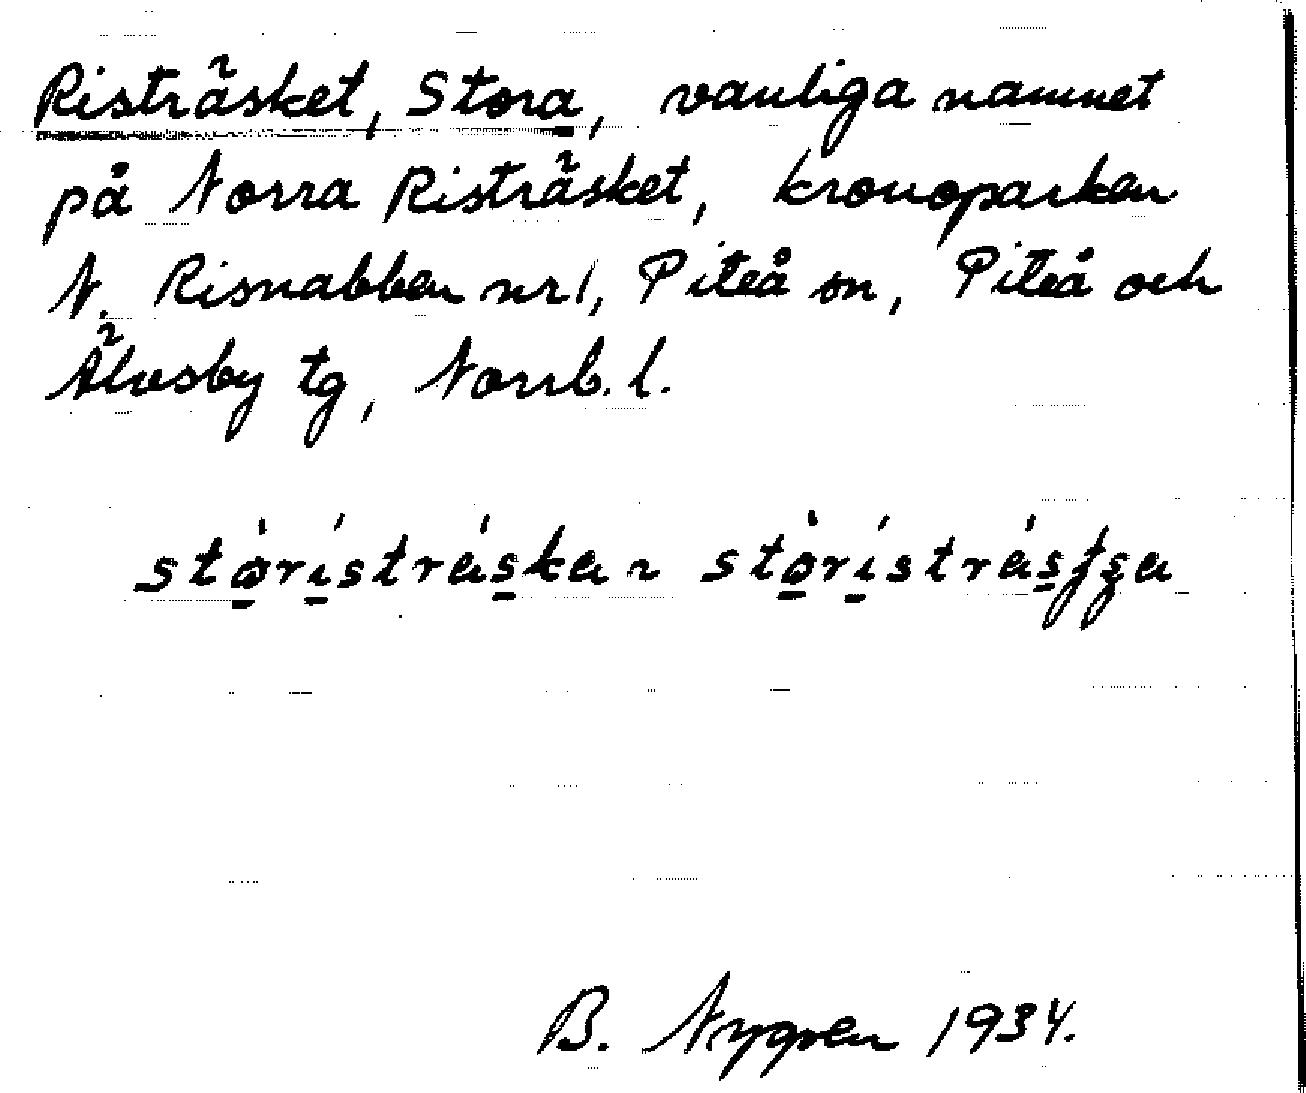 Risträsket, Stora, vanliga namnet
på Norra Risträsket, kronoparken
N. Risnabben nr 1, Piteå sn, Piteå och
Älvsby tg, Norrb. l.
stòrístráska ~ stòrístrásʃʂa
B. Nygren 1934.